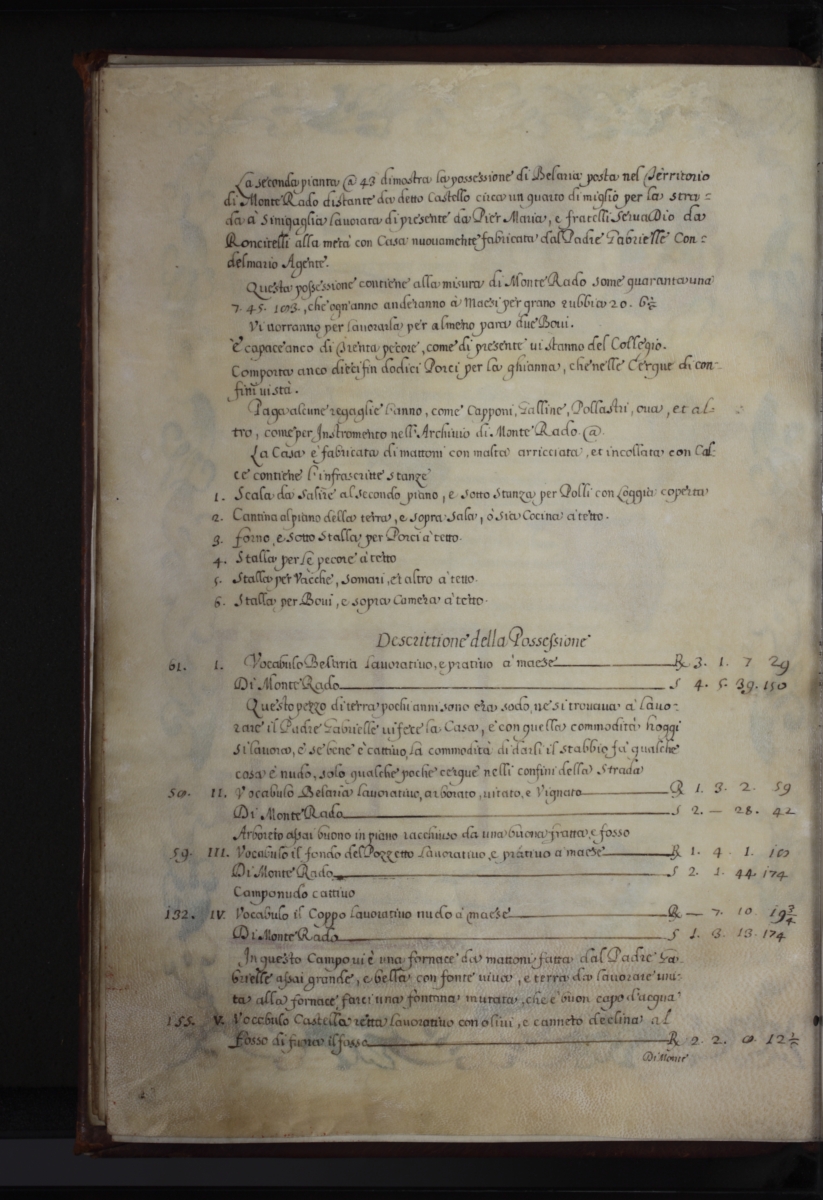 La seconda pianta @ 43 dimostra la possessione di Belaria posta nel Territorio
di Monte Rado distante da detto Castello circa un quarto di miglio per la stra=
da à Sinigaglia lavorata di presente da Pier Maria, e fratelli Servadio da
Roncitelli alla metà con Casa nuovamente fabricata dal Padre Gabrielle Con=
delmario Agente.
Questa possessione contiene alla misura di Monte Rado some quarantauna
7. 45. 103., che ogn'anno anderanno à Maesi per grano rubbia 20. 6½
Vi vorranno per lavorarla per almeno para due Bovi.
È capace anco di Trenta pecore, come di presente vi stanno del Collegio.
Comporta anco dieci fin dodici Porci per la ghianna, che nelle Cerque di con-
fini vi sta.
Paga alcune regaglie l'anno, come Capponi, Galline, Pollastri, ova, et al-
tro, come per Instromento nell'Archivio di Monte Rado. @.
La Casa è fabricata di mattoni con malta arricciata, et incollata con Cal-
ce contiene l'infrascritte stanze
1. Scala da salire al secondo piano, e sotto Stanza per Polli con Loggia coperta
2. Cantina al piano della terra, e sopra sala, ò sia Cocina à tetto.
3. Forno, e sotto Stalla per Porci à tetto.
4. Stalla per le pecore à tetto
5. Stalla per Vacche, Somari, et altro à tetto.
6. Stalla per Bovi, e sopra Camera à tetto.
Descrittione della Possessione
61. I. Vocabulo Belaria lavorativo, e prativo à maese R 3. 1. 7 29
Di Monte Rado S 4. 5. 39. 150
Questo pezzo di terra pochi anni sono era sodo, ne si trovava à lavo-
rare il Padre Gabrielle vi fece la Casa, e con quella commodità hoggi
si lavora, e se bene è cattivo, la commodità di darli il stabbio fà qualche
cosa è nudo, solo qualche poche cerque nelli confini della Strada
50. II. Vocabulo Belaria lavorativo, arborato, vitato, e Vignato R 1. 3. 2. 59
Di Monte Rado S 2. — 28. 42
Arboreto assai buono in piano racchiuso da una buona fratta, e fosso
59. III. Vocabulo il fondo del Pozzetto lavorativo, e prativo à maese R 1. 4. 1. 107
Di Monte Rado S 2. 1. 44. 174
Campo nudo cattivo
132. IV. Vocabulo il Coppo lavorativo nudo à maese R — 7. 10. 19¾
Di Monte Rado S 1. 3. 13. 174
In questo Campo vi è una fornace da mattoni fatta dal Padre Ga-
brielle assai grande, e bella con fonte viva, e terra da lavorare uni-
ta alla fornace farci una fontana murata, che è buon capo d'acqua
155. V. Vocabulo Castellaretta lavorativo con olivi, e canneto declina al
Fosso di fuora il fosso R 2. 2. 0. 12½
Di Monte